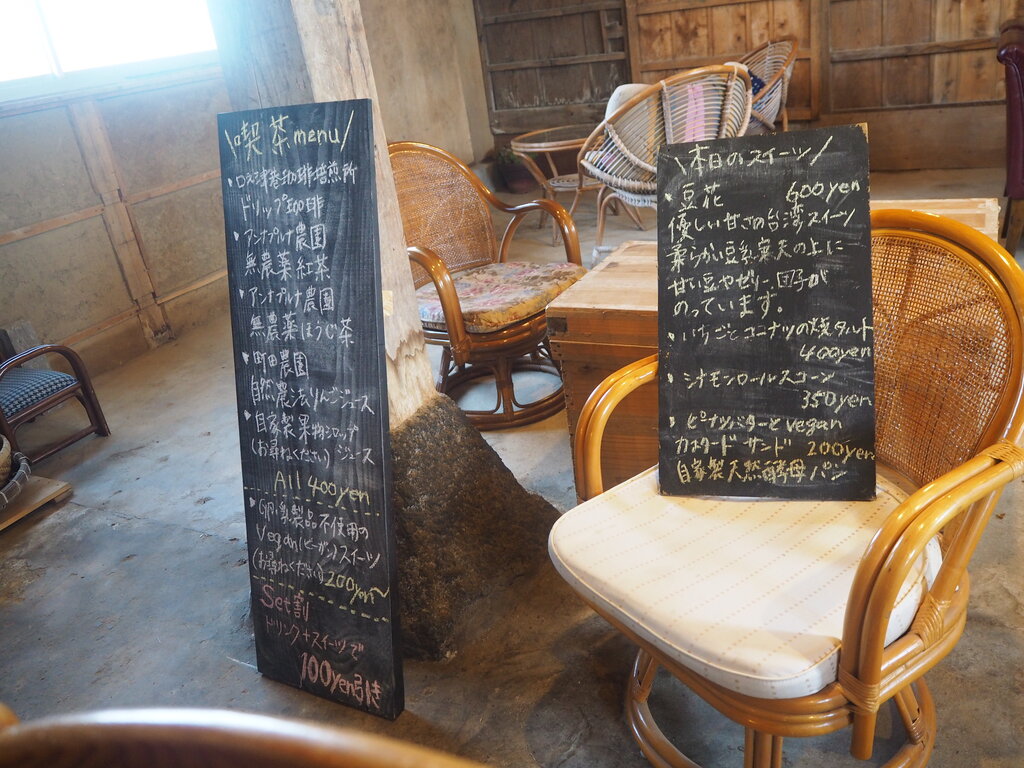 \喫茶menu/
・口之津巻珈琲焙煎所
ドリップ珈琲
・アンナプルナ農園
無農薬紅茶
・アンナプルナ農園
無農薬ほうじ茶
・町田農園
自然農法りんごジュース
・自家製果物シロップ
(お尋ねください)ジュース
All 400yen
・卵・乳製品不使用の
Vegan(ビーガン)スイーツ
(お尋ねください)200yen~
Set割
ドリンク+スイーツで
100yen引き
\本日のスイーツ/
・豆花 600yen
優しい甘さの台湾スイーツ
柔らかい豆乳寒天の上に
甘い豆やゼリー、団子が
のっています。
・いちごとココナツの焼タルト
400yen
・シナモンロールスコーン
350yen
・ピーナツバターとvegan
カスタードサンド 200yen
自家製天然酵母パン